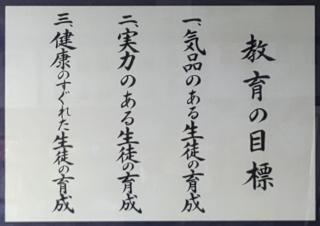 教育の目標
一、気品のある生徒の育成
二、実力のある生徒の育成
三、健康のすぐれた生徒の育成